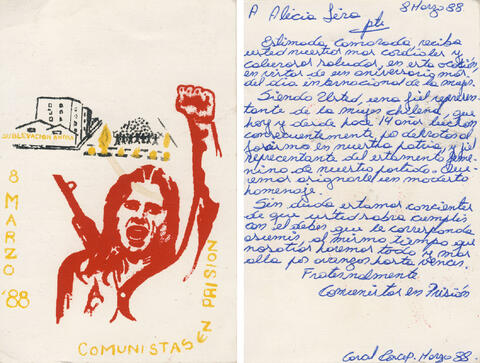 SUBLEVACION
8
MARZO
'88
COMUNISTAS EN PRISION
A Alicia Lira 8 Marzo 88
pte
Estimada camarada reciba
usted nuestros mas cordiales y
calurosos saludos, en esta ocasión
en vistas de un aniversario mas,
del día internacional de la mujer.
Siendo Usted, una fiel represen-
tante de la mujer chilena, que
hoy y hace 14 años luchan
consecuentemente por derrotar al
fascismo en nuestra patria, y fiel
representante del estamento feme-
nino de nuestro partido. Que-
remos asignarle un modesto
homenaje.
Sin duda estamos concientes
de que usted sabra cumplir
con el deber que le corresponda
asumir, al mismo tiempo que
nosotros haremos todo y mas
alla por avanzar hasta vencer.
Fraternalmente
Comunistas en Prisión
Marzo 88.